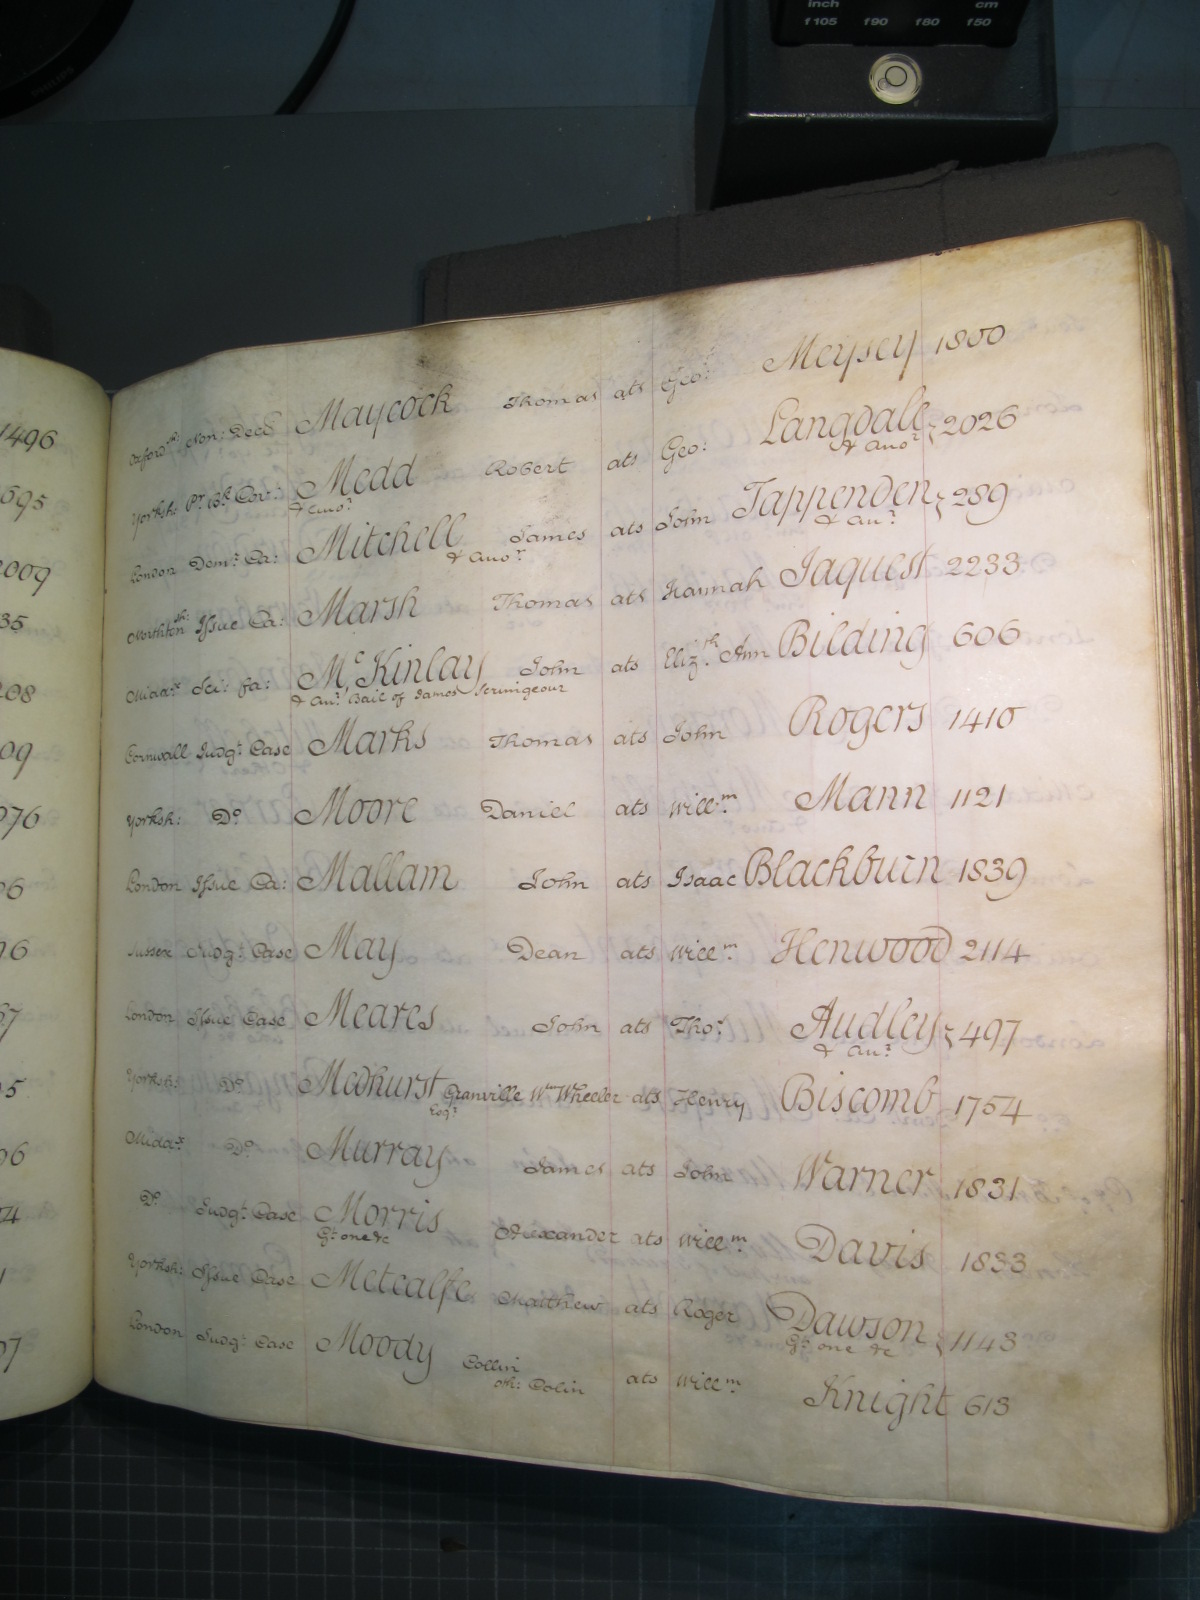 inch cm
f105 f90 f80 f50
1496
695
2009
35
208
09
976
06
16
57
5
06
4
1
07
Oxford Non: Decd Maycock Thomas ats Geo: Meysey 1800
Yorksh: Pr. Bk. Cov: Medd Robert ats Geo: Langdale 2026
& Ano: & Anor
London Demr. Ca: Mitchell James ats John Tappenden 289
& Anor & Anr
Northton Issue Ca: Marsh Thomas ats Hannah Jaquest 2233
Middx Sci: fa: McKinlay John ats Elizth Ann Bilding 606
& Anr Bail of James Scrimgeour
Cornwall Judgt Case Marks Thomas ats John Rogers 1410
Yorksh: Do Moore Daniel ats Willm Mann 1121
London Issue Ca: Mallam John ats Isaac Blackburn 1839
Sussex Judgt Case May Dean ats Willm Henwood 2114
London Issue Case Meares John ats Thos Audley 497
& Anr
Yorksh: Do Medhurst Granville Wm Wheeler ats Henry Biscomb 1754
Esqr
Middx Do Murray James ats John Warner 1831
Do Judgt Case Morris Alexander ats Willm Davis 1833
Gt one &c
Yorksh: Issue Case Metcalfe Matthew ats Roger Dawson 1143
Gt one &c
London Judgt Case Moody Collin ats Willm Knight 613
oth: Colin